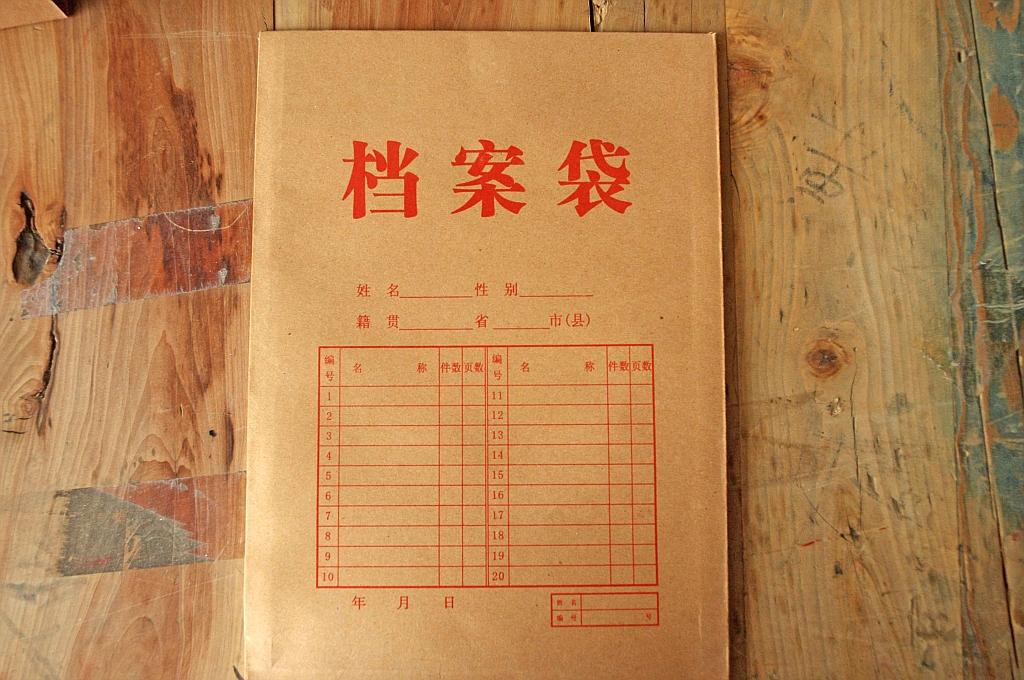 档案袋
姓 名________性 别________
籍 贯________省______市(县)
编号 名 称 件数 页数 编号 名 称 件数 页数
1 11
2 12
3 13
4 14
5 15
6 16
7 17
8 18
9 19
10 20
年 月 日
姓 名
编 号 号